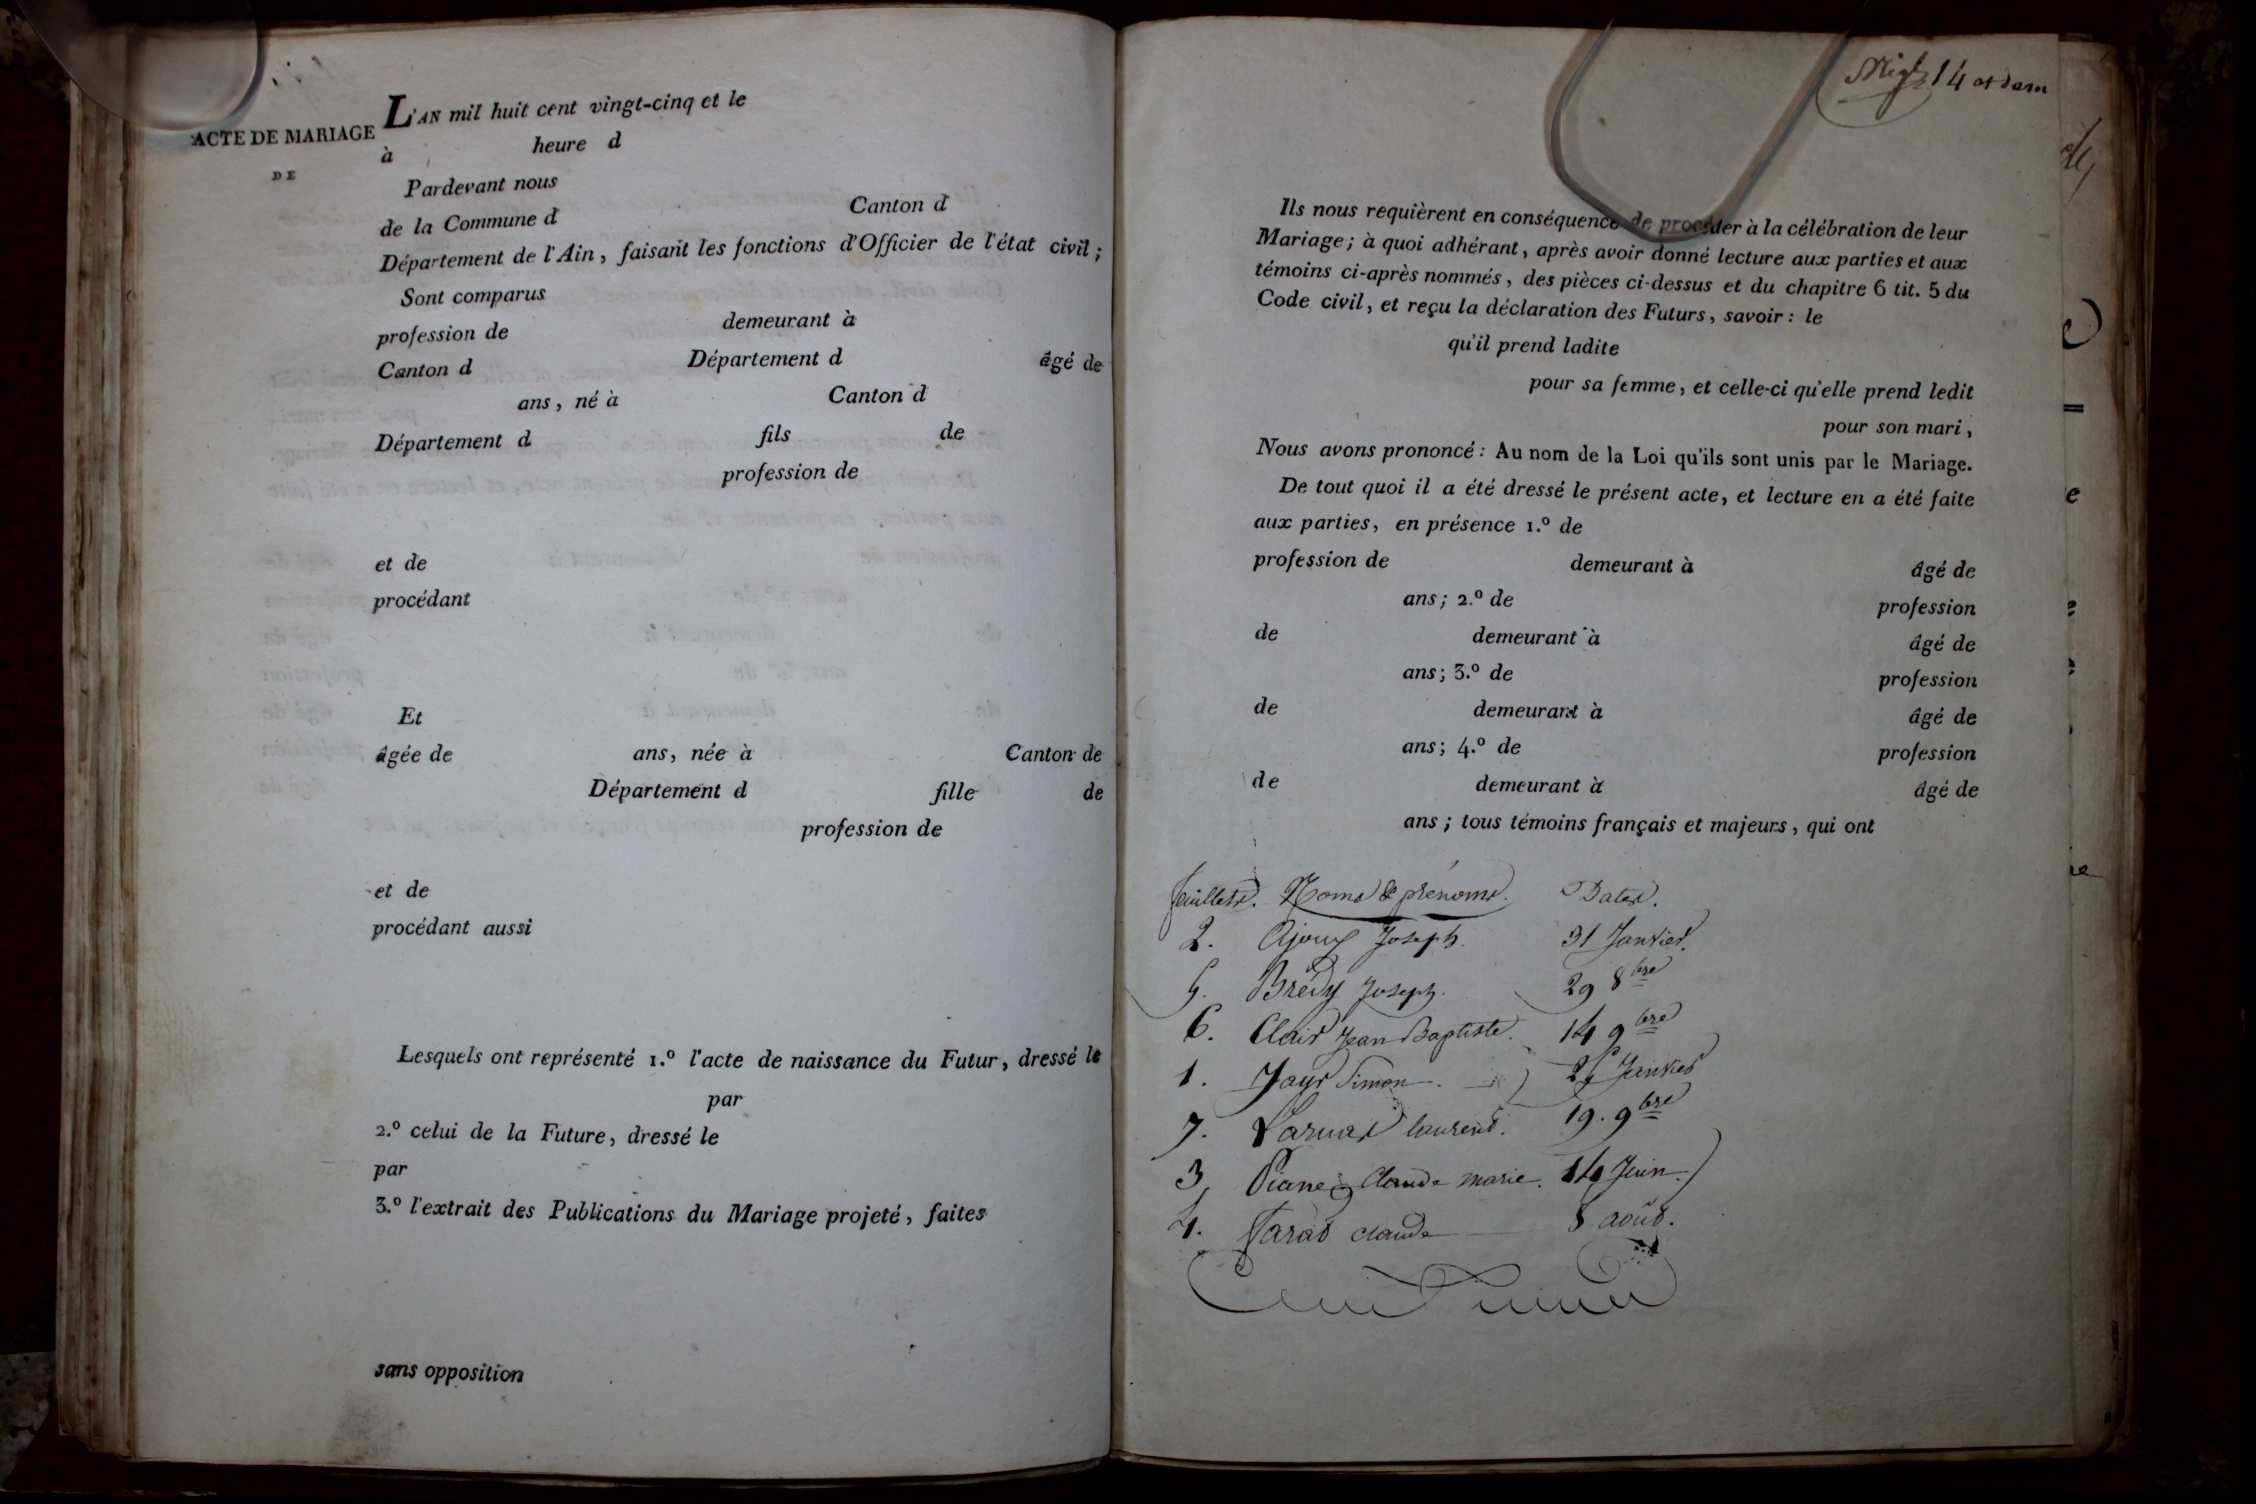 L'AN mil huit cent vingt-cinq et le
ACTE DE MARIAGE
DE
à heure d
Pardevant nous
de la Commune d Canton d
Département de l'Ain, faisant les fonctions d'Officier de l'état civil;
Sont comparus
profession de demeurant à
Canton d Département d âgé de
ans, né à Canton d
Département d fils de
profession de
et de
procédant
Et
âgée de ans, née à Canton de
Département d fille de
profession de
et de
procédant aussi
Lesquels ont représenté 1.º l'acte de naissance du Futur, dressé le
par
2.º celui de la Future, dressé le
par
3.º l'extrait des Publications du Mariage projeté, faites
sans opposition
14
Ils nous requièrent en conséquence de procéder à la célébration de leur
Mariage; à quoi adhérant, après avoir donné lecture aux parties et aux
témoins ci-après nommés, des pièces ci-dessus et du chapitre 6 tit. 5 du
Code civil, et reçu la déclaration des Futurs, savoir: le
qu'il prend ladite
pour sa femme, et celle-ci qu'elle prend ledit
pour son mari,
Nous avons prononcé: Au nom de la Loi qu'ils sont unis par le Mariage.
De tout quoi il a été dressé le présent acte, et lecture en a été faite
aux parties, en présence 1.º de
profession de demeurant à âgé de
ans; 2.º de profession
de demeurant à âgé de
ans; 3.º de profession
de demeurant à âgé de
ans; 4.º de profession
de demeurant à âgé de
ans; tous témoins français et majeurs, qui ont
feuillets. Noms & prénoms. Dates.
2. Ajoux Joseph. 31 Janvier.
5. Brédy Joseph. 29 8bre
6. Clair Jean Baptiste. 14 9bre
1. Jayr Simon. Janvier
7. laurent. 19. 9bre
3 Claude marie. 14 Juin.
4. claude 8 août.